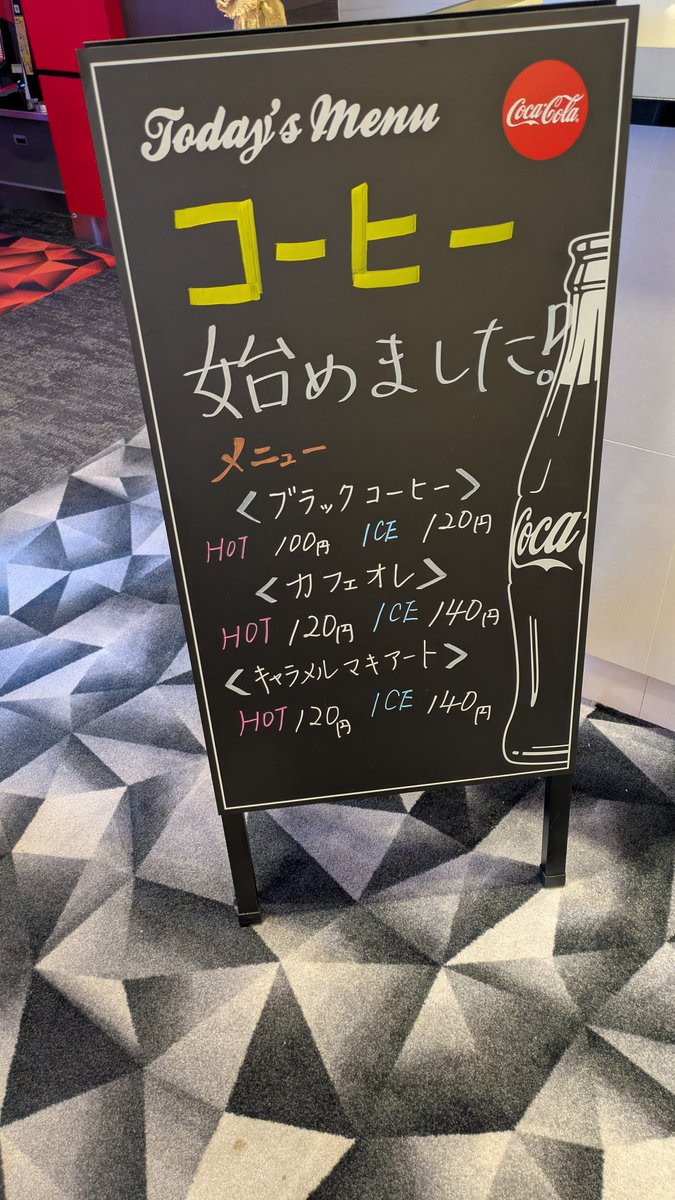 Today's Menu
Coca-Cola
コーヒー
始めました!
メニュー
<ブラックコーヒー>
HOT 100円 ICE 120円
<カフェオレ>
HOT 120円 ICE 140円
<キャラメルマキアート>
HOT 120円 ICE 140円
Coca